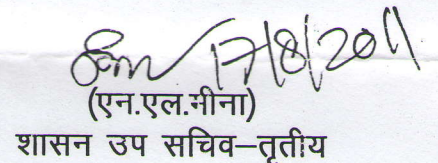 17/8/2011
(एन.एल.मीना)
शासन उप सचिव–तृतीय